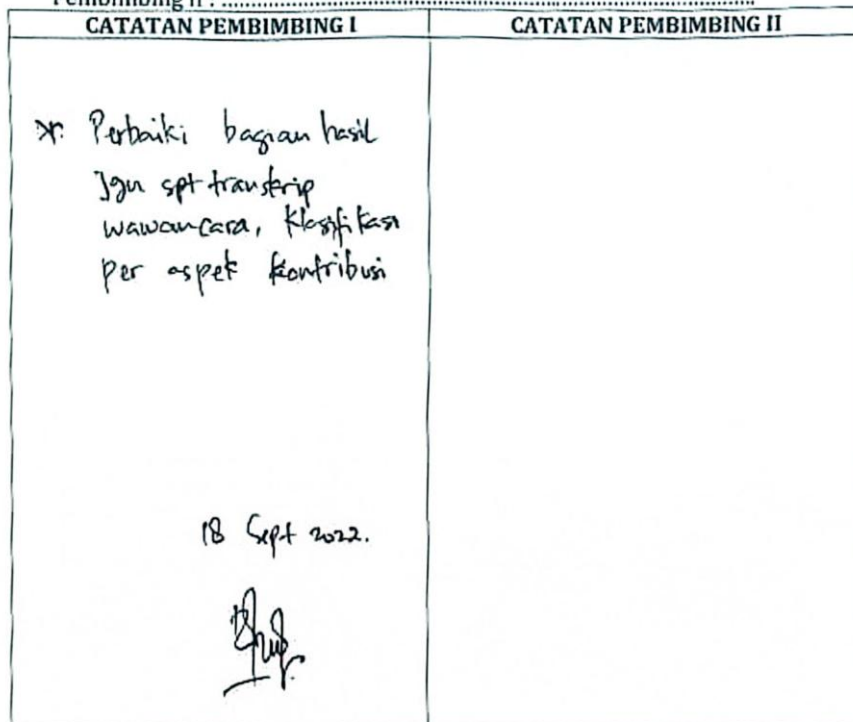 Pembimbing II : ........................................................................
CATATAN PEMBIMBING I
CATATAN PEMBIMBING II
* Perbaiki bagian hasil
Jgn spt transkrip
wawancara, klasifikasi
per aspek kontribusi
18 Sept 2022.